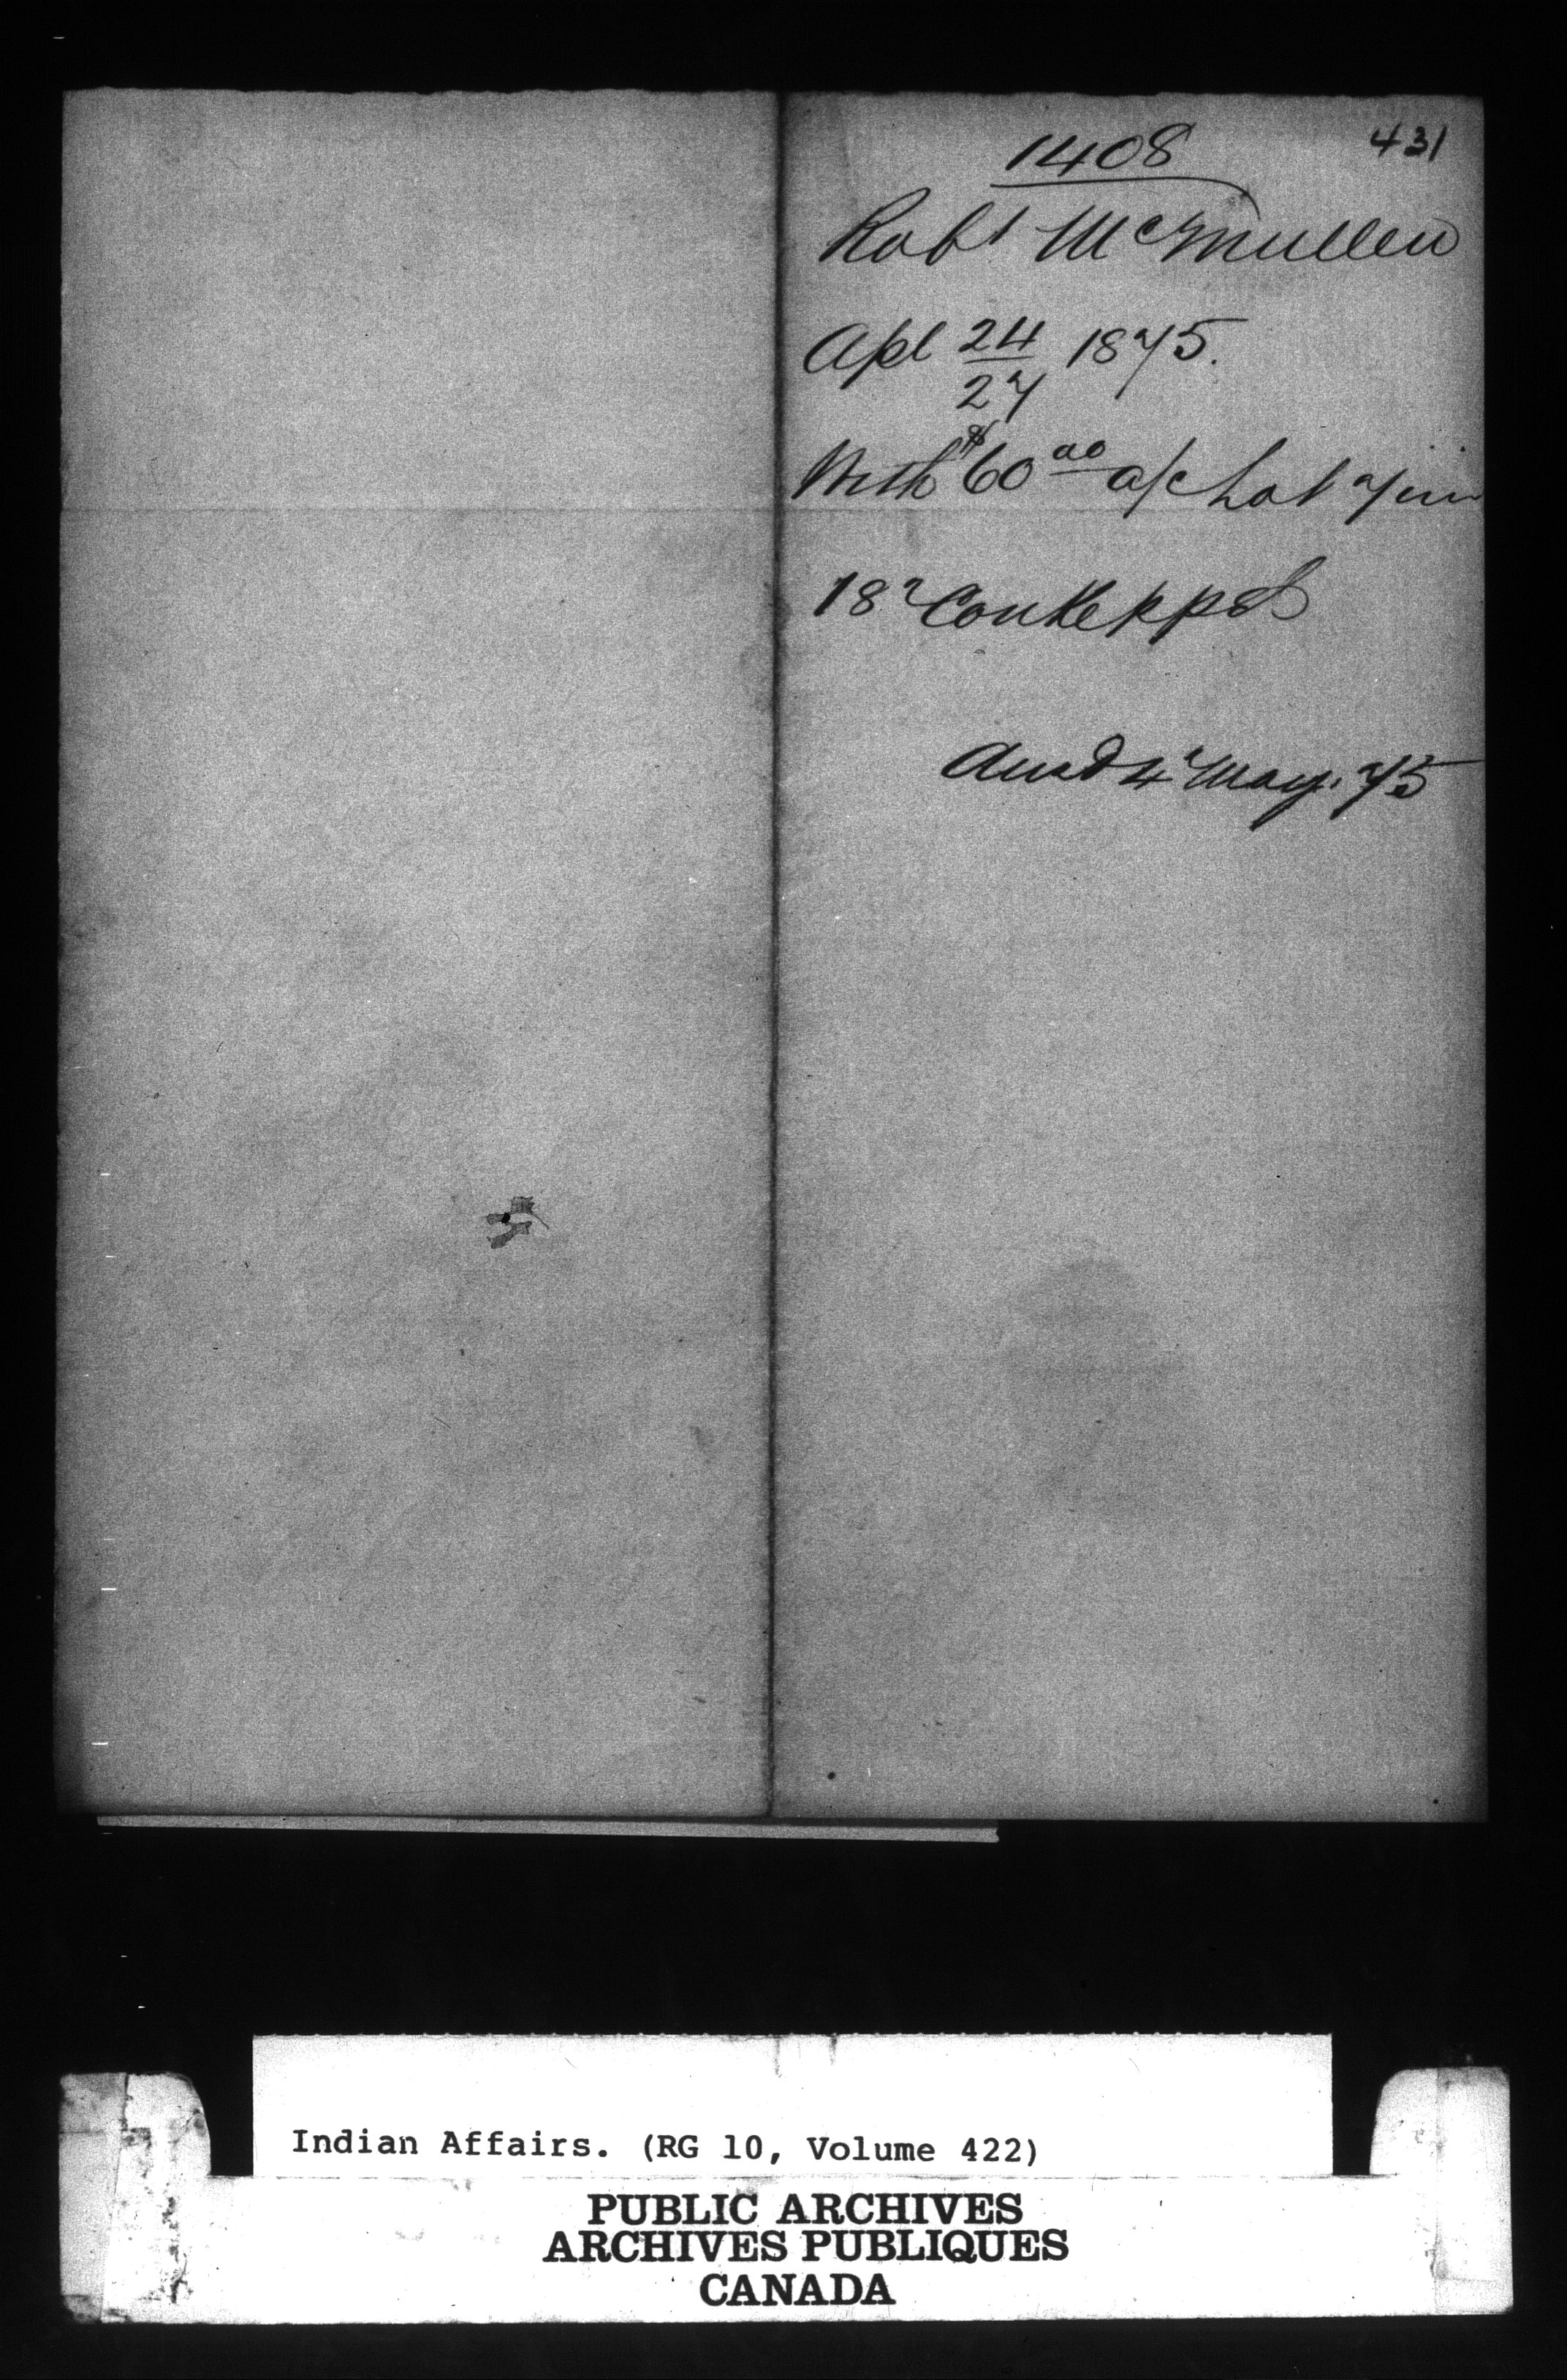 431
1408
Robt McMullen
Apl 24 1875.
27
With $60 00 a/c Lot 7 in
18 Con Keppel
Ansd 4 May. 75
Indian Affairs. (RG 10, Volume 422)
PUBLIC ARCHIVES
ARCHIVES PUBLIQUES
CANADA